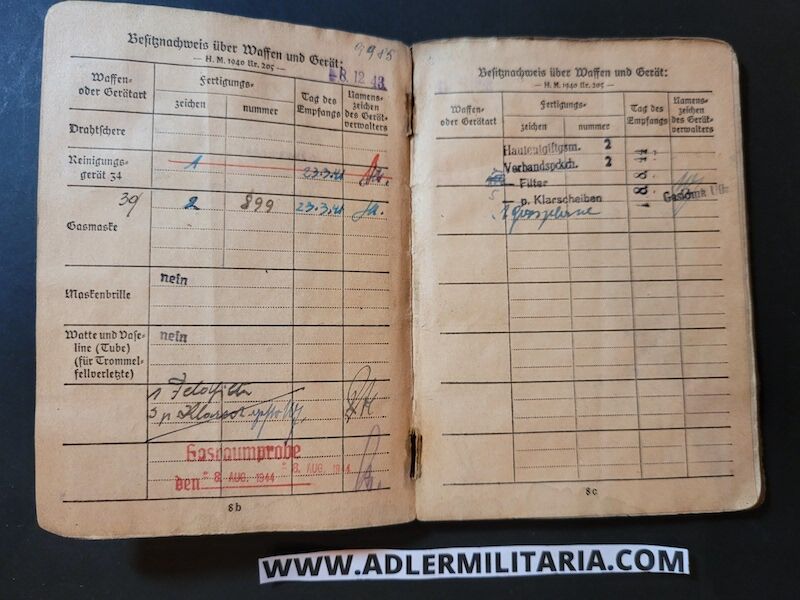 Besitznachweis über Waffen und Gerät:
9985
— H. M. 1940 Nr. 205 —
8.12.43
Waffen-
oder Gerätart
Fertigungs-
zeichen
nummer
Tag des
Empfangs
Namens-
zeichen
des Gerät-
verwalters
Drahtschere
Reinigungs-
gerät 34
1
23.3.41
39
2
899
23.3.41
Gasmaske
nein
Maskenbrille
nein
Watte und Vase-
line (Tube)
(für Trommel-
fellverletzte)
1
3 p. Klarsch
Gasraumprobe
den 8. AUG. 1944
8. AUG. 1944
8b
Besitznachweis über Waffen und Gerät:
— H. M. 1940 Nr. 205 —
Waffen-
oder Gerätart
Fertigungs-
zeichen
nummer
Tag des
Empfangs
Namens-
zeichen
des Gerät-
verwalters
Hautentgiftgsm. 2
Verbandspckch. 2
— Filter
5 — p. Klarscheiben
1 Gasplane
8.8.44
8c
WWW.ADLERMILITARIA.COM